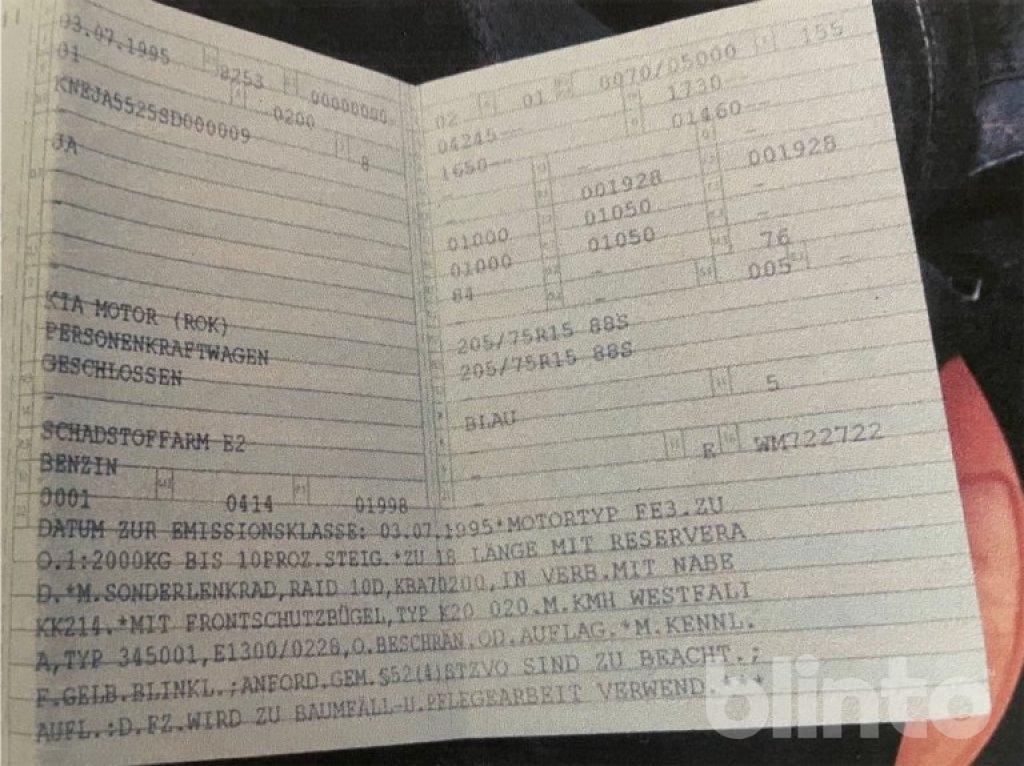 03.07.1995 8253 00000000
01 0200
KNEJA5525SD000009 8
-
JA
-
-
-
-
KIA MOTOR (ROK)
PERSONENKRAFTWAGEN
GESCHLOSSEN
-
SCHADSTOFFARM E2
BENZIN
0001 0414 01998
02 01 0070/05000 155
04245-- 1730
1650-- - 01460--
- 001928 001928
01000 01050 -
01000 01050 -
84 - 76
- 005 -
205/75R15 88S
205/75R15 88S
-
BLAU 5
-
- E WM722722
DATUM ZUR EMISSIONSKLASSE: 03.07.1995*MOTORTYP FE3.ZU
O.1:2000KG BIS 10PROZ.STEIG.*ZU 18 LÄNGE MIT RESERVERA
D.*M.SONDERLENKRAD,RAID 10D,KBA70200,IN VERB.MIT NABE
KK214.*MIT FRONTSCHUTZBÜGEL,TYP K20 020.M.KMH WESTFALI
A,TYP 345001,E1300/0228,O.BESCHRÄN.OD.AUFLAG.*M.KENNL.
F.GELB.BLINKL.;ANFORD.GEM.§52(4)STZVO SIND ZU BEACHT.;
AUFL.:D.FZ.WIRD ZU BAUMFÄLL-U.PFLEGEARBEIT VERWEND.***
blinto